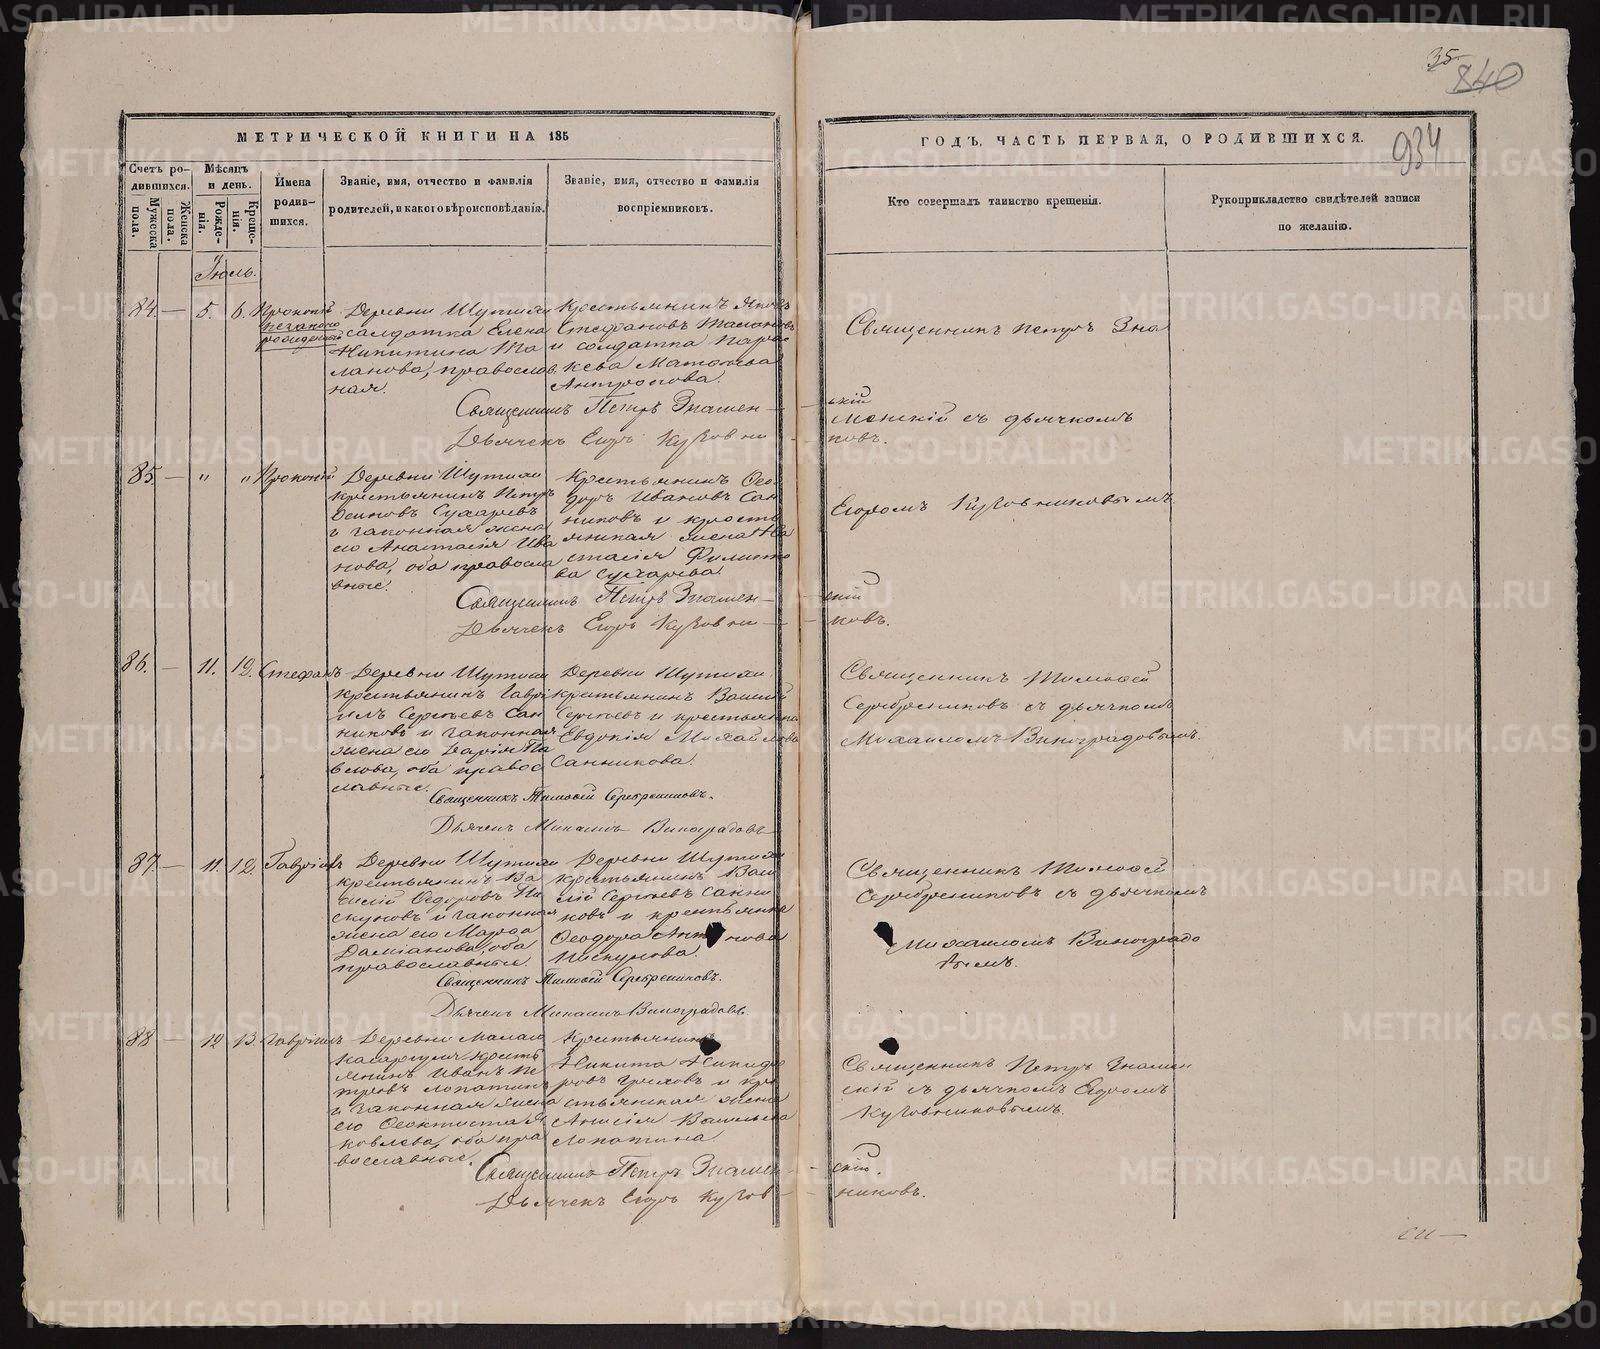 35
840
934
МЕТРИЧЕСКОЙ КНИГИ НА 185
ГОДЪ, ЧАСТЬ ПЕРВАЯ, О РОДИВШИХСЯ.
Счетъ ро-
дившихся.
Мужеска
пола.
Женска
пола.
Мѣсяцъ
и день.
Рожде-
нія.
Креще-
нія.
Имена
родив-
шихся.
Званіе, имя, отчество и фамилія
родителей, и какого вѣроисповѣданія.
Званіе, имя, отчество и фамилія
воспріемниковъ.
Кто совершалъ таинство крещенія.
Рукоприкладство свидѣтелей записи
по желанію.
Іюль.
84. — 5. 6. Прокопій
незаконо
рожденный
Деревни Шутихи
салдатка Елена
Никитина
ланова, православ
ная.
Крестьянинъ Яковъ
Стефановъ
и солдатка Парас
кева
Антропова.
Священникъ Петръ Зна
менскій съ дьячкомъ
Егоромъ
Священникъ Петръ Знамен- - скій
Дьячекъ Егоръ
85. — " " Прокопій
Деревни Шутихи
крестьянинъ Петръ
Осиповъ Сухаревъ
и законная жена
его Анастасія Ива
нова, оба правосла
вные.
Крестьянинъ Ѳео
доръ Ивановъ Сан
никовъ и кресть
янская жена На
стасія Филипо
ва Сухарева.
Священникъ Петръ Знамен- - скій
Дьячекъ Егоръ
86. — 11. 12. Стефанъ
Деревни Шутихи
крестьянинъ Гаврі
илъ Сергѣевъ Сан
никовъ и законная
жена его Дарія Па
влова, оба правос
лавные.
Деревни Шутихи
крестьянинъ Василій
Сергѣевъ и крестьянка
Евдокія Михайлова
Санникова.
Священникъ Тимоѳей
Серебрениковъ съ дьячкомъ
Михаиломъ Виноградовымъ.
Священникъ Тимоѳей Серебрениковъ.
Дьячекъ Михаилъ Виноградовъ
87 — 11. 12. Гавріилъ
Деревни Шутихи
крестьянинъ Ва
силій Ѳедоровъ Пи
скуновъ и законная
жена его Марѳа
Даміанова, оба
православные.
Деревни Шутихи
крестьянинъ Васи
лій Сергѣевъ Санни
ковъ и крестьянка
Ѳеодора
Пискунова.
Священникъ Тимоѳей
Серебрениковъ съ дьячкомъ
Михаиломъ Виноградо
вымъ.
Священникъ Тимоѳей Серебрениковъ.
Дьячекъ Михаилъ Виноградовъ.
88 — 12 13. Гавріилъ
Деревни Малаго
Касаргуля кресть
янинъ Иванъ Пе
тровъ Лопатинъ
и законная жена
его Ѳеоктиста Я
ковлева, оба пра
вославные.
Крестьянинъ
Никита Никифо
ровъ и кре
стьянская жена
Анисія Васильева
Лопатина
Священникъ Петръ Знамен
скій съ дьячкомъ Егоромъ
Священникъ Петръ Знамен- - скій.
Дьячекъ Егоръ
METRIKI.GASO-URAL.RU